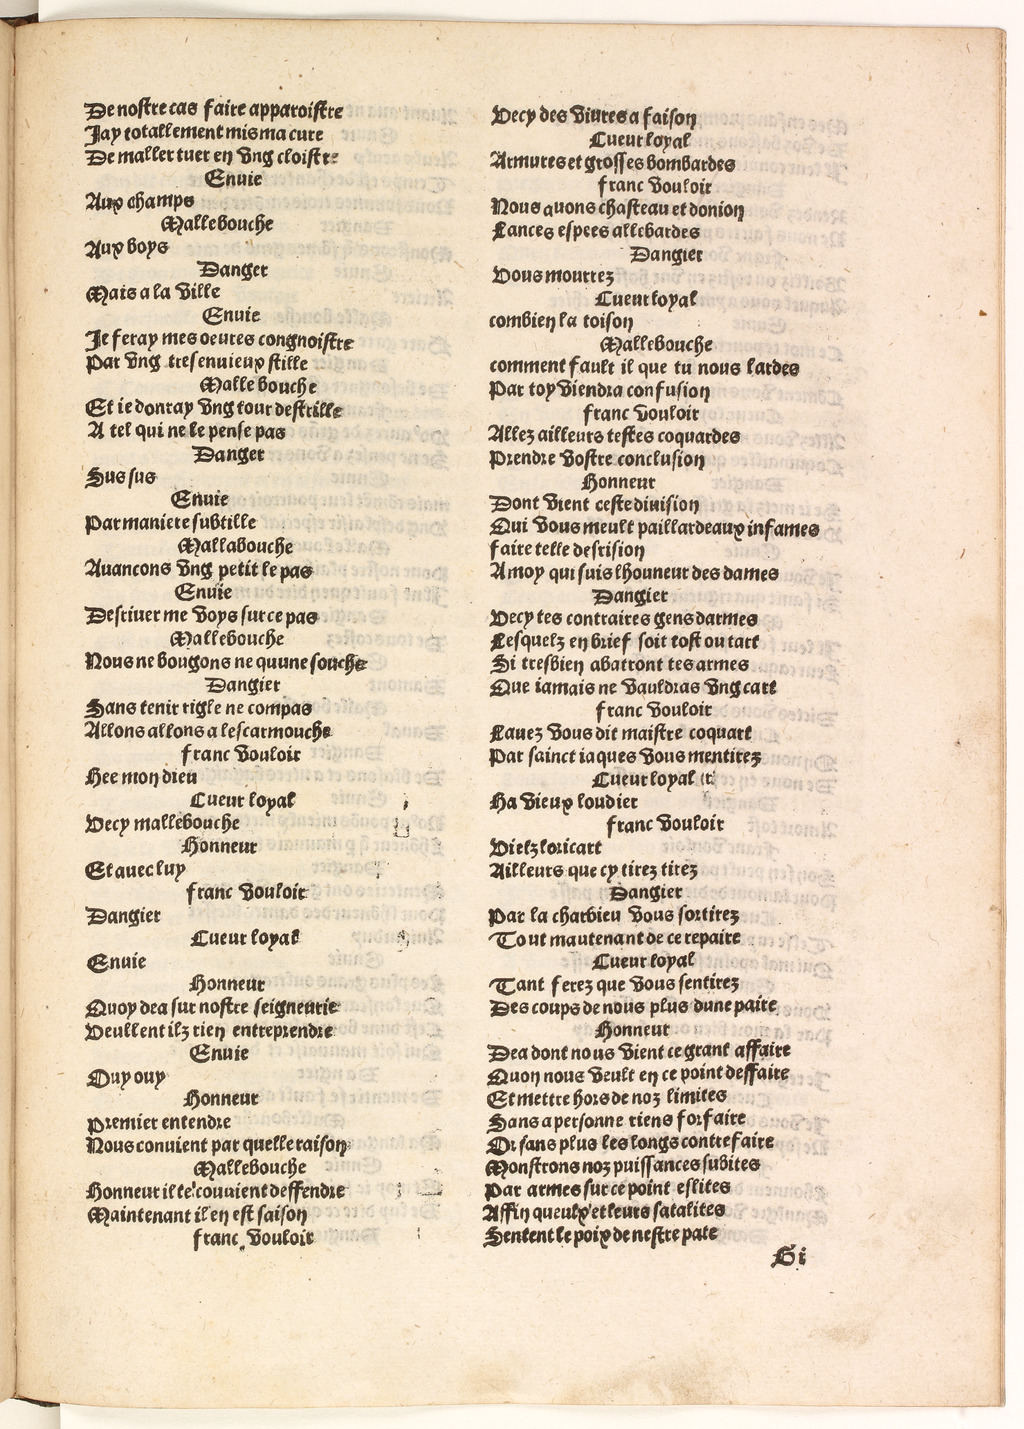 De nostre cas faire apparoistre
Jay totallement mis ma cure
De maller tuer en vng cloistre
Enuie
Aux champs
Mallebouche
Aux boys
Danger
Mais a la ville
Enuie
Je feray mes oeures congnoistre
Par vng tresenuieux stille
Malle bouche
Et ie donray vng tour destrille
A tel qui ne le pense pas
Danger
Sus sus
Enuie
Par maniere subtille
Mallabouche
Auancons vng petit le pas
Enuie
Destiuer me voys sur ce pas
Mallebouche
Nous ne bougons ne quune souche
Dangier
Sans tenir rigle ne compas
Allons allons a lescarmouche
franc vouloir
Hee mon dieu
Cueur loyal
Vecy mallebouche
Honneur
Et auec luy
franc vouloir
Dangier
Cueur loyal
Enuie
Honneur
Quoy dea sur nostre seigneurie
Veullent ilz rien entreprendre
Enuie
Ouy ouy
Honneur
Premier entendre
Nous conuient par quelle raison
Mallebouche
Honneur il te conuient deffendre
Maintenant il en est saison
franc vouloir
Vecy des viures a faison
Cueur loyal
Armures et grosses bombardes
franc vouloir
Nous auons chasteau et donion
Lances espees allebardes
Dangier
Vous mourrez
Cueur loyal
combien la toison
Mallebouche
comment fault il que tu nous lardes
Par toy viendra confusion
franc vouloir
Allez ailleurs testes coquardes
Prendre vostre conclusion
Honneur
Dont vient ceste diuision
Qui vous meult paillardeaux infames
faire telle desrision
A moy qui suis lhouneur des dames
Dangier
Vecy tes contraires gensdarmes
Lesquelz en brief soit tost ou tart
Si tresbien abatront tes armes
Que iamais ne vauldras vng cart
franc vouloir
Lauez vous dit maistre coquart
Par sainct iaques vous mentirez
Cueur loyal
Ha vieux loudier
franc vouloir
Vielz loricart
Ailleurs que cy tirez tirez
Dangier
Par la charbieu vous sortirez
Tout mautenant de ce repaire
Cueur loyal
Tant ferez que vous sentirez
Des coups de nous plus dune paire
Honneur
Dea dont nous vient ce grant affaire
Quon nous veult en ce point deffaire
Et mettre hors de noz limites
Sans a personne riens forfaire
Or sans plus les longs contrefaire
Monstrons noz puissances subites
Par armes sur ce point eslites
Affin queulx et leurs satalites
Sentent le poix de nestre pate
Gi